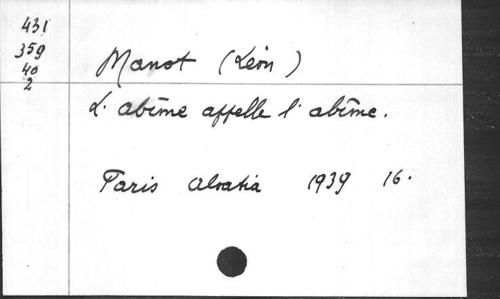 431
359
40
2
Manot (Léon)
L'abîme appelle l'abîme.
Paris Alsatia 1939 16.